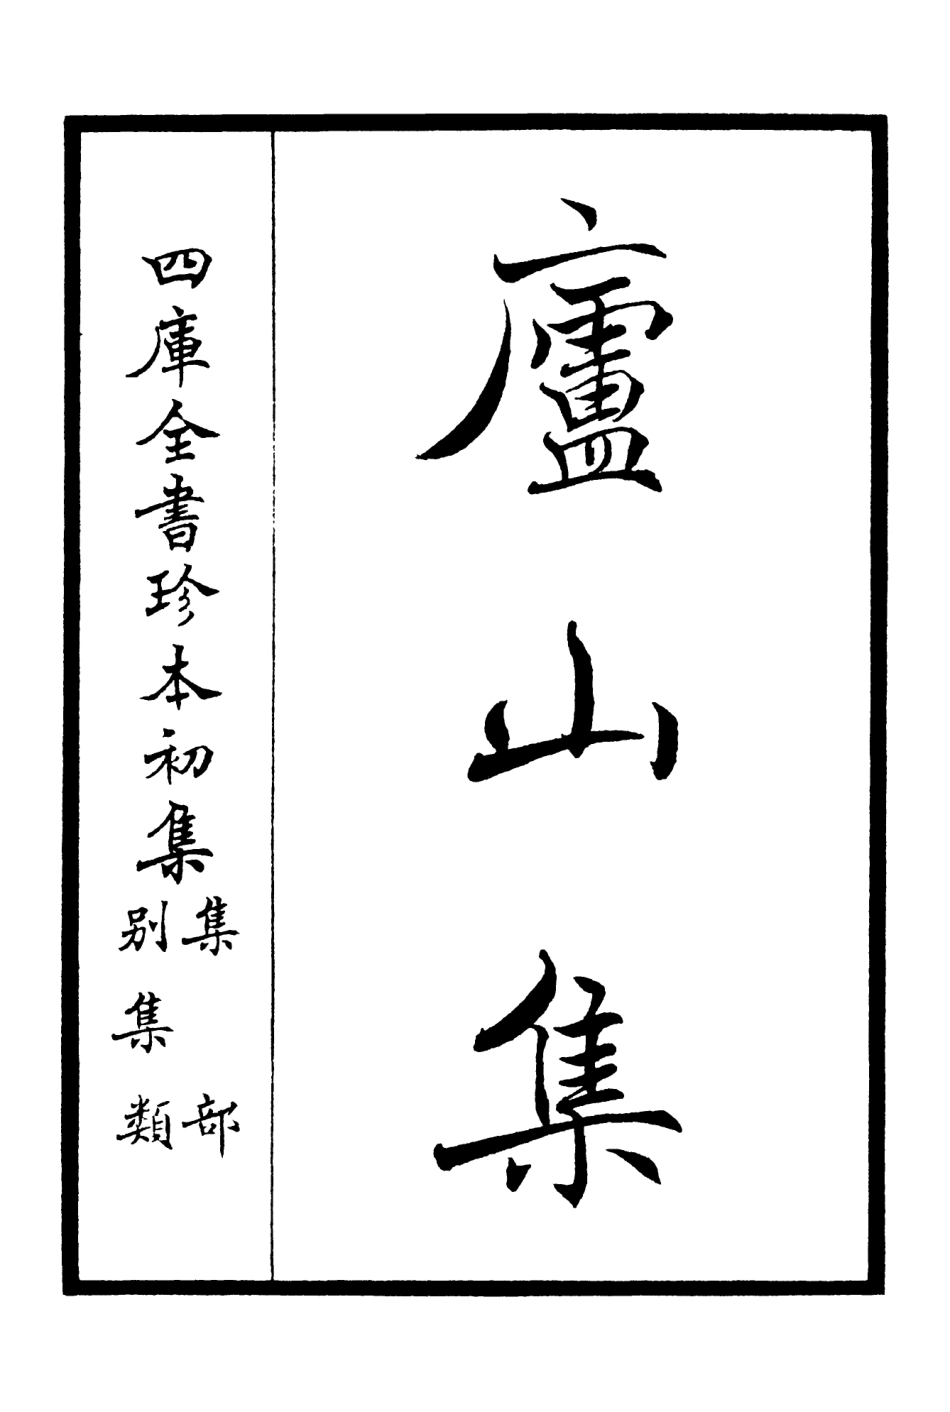 廬山集
四庫全書珍本初集
集部
别集類